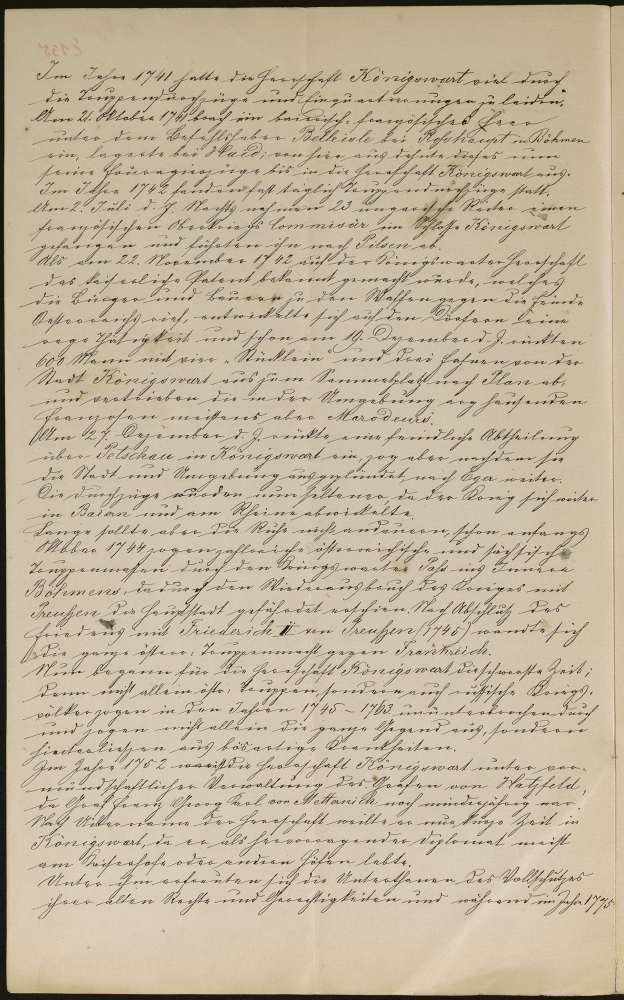 Im Jahre 1741 hatte die Herrschaft Königswart viel durch
die Truppendurchzüge und Einquartierungen zu leiden.
Am 21. Oktober 1741 brach ein bairisch-französisches Heer
unter dem Befehlshaber Belleisle bei Roßhaupt in Böhmen
ein, lagerte bei Haid; von hier aus dehnte dieses nun
seine Fouragierzüge bis in die Herrschaft Königswart aus.
Im Jahre 1742 fanden fast täglich Truppendurchzüge statt.
Am 2. Juli d. J. Nachts nahmen 23 ungarische Reiter einen
französischen Oberkriegs Commissär im Schlosse Königswart
gefangen und führten ihn nach Pilsen ab.
Als am 22. November 1742 auf der Königswarter Herrschaft
das kaiserliche Patent bekannt gemacht wurde, welches
die Bürger und Bauern zu den Waffen gegen die Feinde
Oesterreichs rief, entwickelte sich auf den Dörfern eine
rege Thätigkeit und schon am 19. Dezember d. J. rückten
600 Mann mit vier "Stücklein" und drei Fahnen von der
Stadt Königswart aus zum Sammelplatz nach Plan ab,
und vertrieben die in der Umgebung arg hausenden
Franzosen meistens aber Marodeurs.
Am 27. Dezember d. J. rückte eine feindliche Abtheilung
über Petschau in Königswart ein, zog aber nachdem sie
die Stadt und Umgebung ausgeplündert, nach Eger weiter.
Die Durchzüge wurden nun seltener, da der Krieg sich weiter
in Baiern und am Rheine abwickelte.
Lange sollte aber die Ruhe nicht andauern, schon anfangs
Oktober 1744 zogen zahlreiche österreichische und sächsische
Truppenmassen durch den Königswarter Paß ins Innere
Böhmens, da durch den Wiederausbruch des Krieges mit
Preußen die Hauptstadt gefährdet erschien. Nach Abschluß des
Friedens mit Friederich II von Preußen (1745) wandte sich
die ganze österr. Truppenmacht gegen Frankreich.
Nun begann für die Herrschaft Königswart die schwerste Zeit;
denn nicht allein östr. Truppen, sondern auch russische Kriegs-
völker zogen in den Jahren 1745 - 1763 ununterbrochen durch
und sogen nicht allein die ganze Gegend aus, sondern
hinterließen auch bösartige Krankheiten.
Im Jahre 1752 war die Herrschaft Königswart unter vor-
mundschaftlicher Verwaltung des Grafen von Hatzfeld,
da Graf Franz Georg Karl von Metternich noch minderjährig war.
Nach Übernahme der Herrschaft weilte er nur kurze Zeit in
Königswart, da er als hervorragender Diplomat meist
am Kaiserhofe oder andern Höfen lebte.
Unter ihm erfreuten sich die Unterthanen des Vollschutzes
ihrer alten Rechte und Gerechtigkeiten und während im Jahre 1775